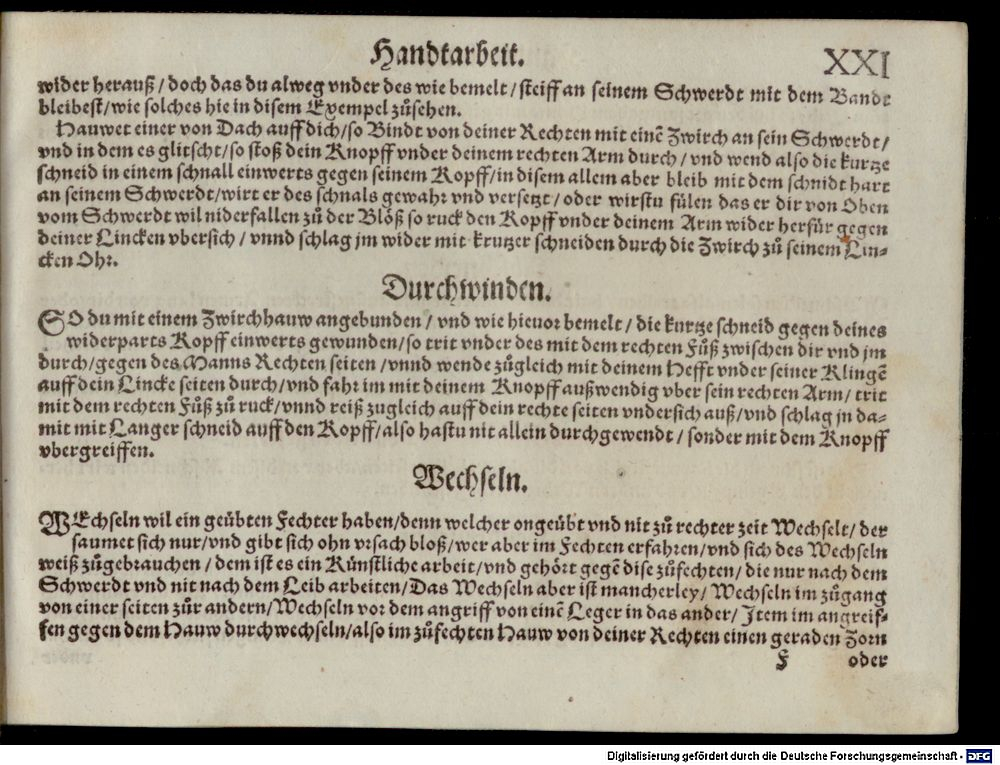 Handtarbeit. XXI
wider herauß / doch das du alweg vnder des wie bemelt / steiff an seinem Schwerdt mit dem Bandt
bleibest / wie solches hie in disem Exempel zůsehen.
Hauwet einer von Dach auff dich / so Bindt von deiner Rechten mit einē Zwirch an sein Schwerdt /
vnd in dem es glitscht / so stoß dein Knopff vnder deinem rechten Arm durch / vnd wend also die kurtze
schneid in einem schnall einwerts gegen seinem Kopff / in disem allem aber bleib mit dem schnidt hart
an seinem Schwerdt / wirt er des schnals gewahr vnd versetzt / oder wirstu fülen das er dir von Oben
vom Schwerdt wil niderfallen zů der Blöß so ruck den Kopff vnder deinem Arm wider herfür gegen
deiner Lincken vbersich / vnnd schlag jm wider mit krutzer schneiden durch die Zwirch zů seinem Lin-
cken Ohr.
Durchwinden.
SO du mit einem Zwirchhauw angebunden / vnd wie hieuor bemelt / die kurtze schneid gegen deines
widerparts Kopff einwerts gewunden / so trit vnder des mit dem rechten Fůß zwischen dir vnd jm
durch / gegen des Manns Rechten seiten / vnnd wende zůgleich mit deinem Hefft vnder seiner Klingē
auff dein Lincke seiten durch / vnd fahr im mit deinem Knopff außwendig vber sein rechten Arm / trit
mit dem rechten Fůß zů ruck / vnnd reiß zugleich auff dein rechte seiten vndersich auß / vnd schlag jn da-
mit mit Langer schneid auff den Kopff / also hastu nit allein durchgewendt / sonder mit dem Knopff
vbergreiffen.
Wechseln.
WEchseln wil ein geübten Fechter haben / denn welcher ongeübt vnd nit zů rechter zeit Wechselt / der
saumet sich nur / vnd gibt sich ohn vrsach bloß / wer aber im Fechten erfahren / vnd sich des Wechseln
weiß zůgebrauchen / dem ist es ein Künstliche arbeit / vnd gehört gegē dise zůfechten / die nur nach dem
Schwerdt vnd nit nach dem Leib arbeiten / Das Wechseln aber ist mancherley / Wechseln im zůgang
von einer seiten zůr andern / Wechseln vor dem angriff von einē Leger in das ander / Item im angreif-
fen gegen dem Hauw durchwechseln / also im zůfechten Hauw von deiner Rechten einen geraden Zorn
F oder
Digitalisierung gefördert durch die Deutsche Forschungsgemeinschaft - DFG